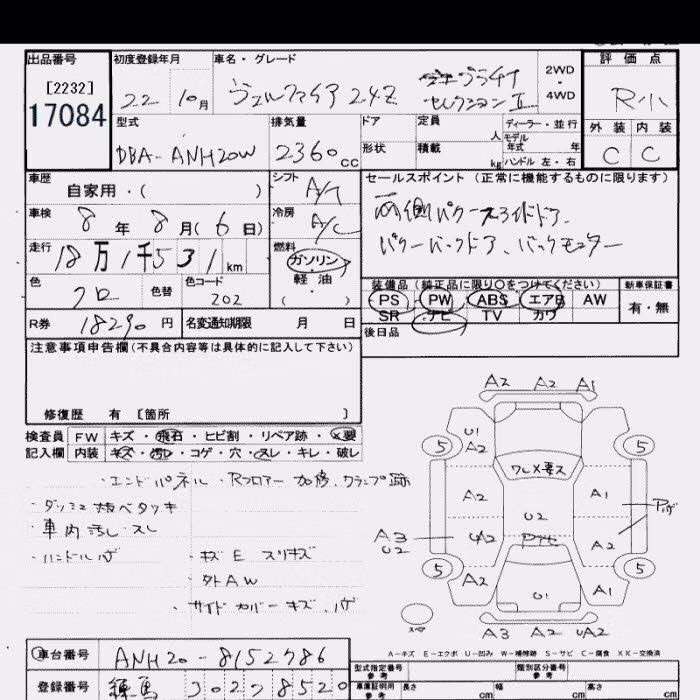 出品番号 初度登録年月 車名・グレード 評価点
[2232]
17084
22 10月 ヴェルファイア 2.4Z セレクションⅡ 2WD・4WD R小
型式 排気量 ドア 定員 人 ディーラー・並行 外装 内装
モデル年式 年
DBA-ANH20W 2360cc 形状 積載 kg ハンドル 左・右 C C
車歴 シフト セールスポイント(正常に機能するものに限ります)
自家用・( ) A/T
車検 8年 8月(6日) 冷房 A/C 両側パワースライドドア、
走行 18万1千531km 燃料 ガソリン パワーバックドア、バックモニター
色 色替 色コード ・軽油・ 装備品(純正品に限り○をつけてください) 新車保証書
クロ 202 ( ) PS PW ABS エアB AW 有・無
SR ナビ TV カワ
R券 18290円 名変通知期限 月 日 後日品
注意事項申告欄(不具合内容等は具体的に記入して下さい)
修復歴 有 [箇所 ]
検査員 FW キズ・飛石・ヒビ割・リペア跡・×要
記入欄 内装 キズ・汚レ・コゲ・穴・スレ・キレ・破レ
・エンドパネル・Rフロアー加修、クランプ跡
・ダッシュ類ベタツキ
・車内汚レ・スレ
・ハンドルハゲ ・キズE スリキズ
・外AW
・サイドカバーキズ、ハゲ
A2 A2 A1
U1
A2
5 5
ワレ×要ス
A2 A1
U2
A3
U2
A2 A2
5 5
A2 A1
U1
スペア
A3 A2 UA2
A-キズ E-エクボ U-凹み W-補修跡 S-サビ C-腐食 XX-交換済
車台番号 ANH20-8152786 型式指定番号 参考 類別区分番号 参考
登録番号 練馬 302 8520 車庫証明用 参考 長さ cm 幅 cm 高さ cm